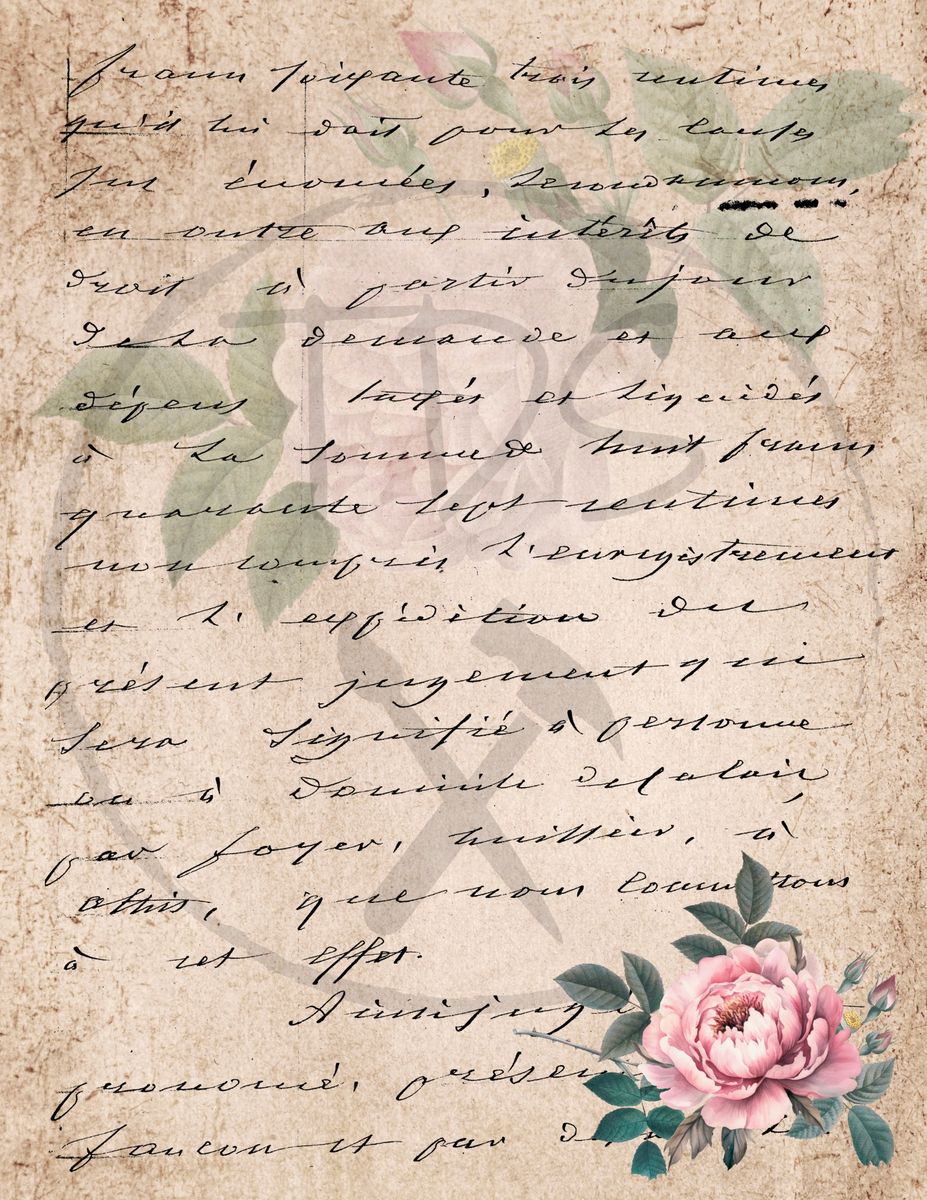 francs soixante trois centimes
qu'il lui doit pour les causes
sus énoncées, le condamnons,
en outre aux intérêts de
droit à partir du jour
de la demande et aux
dépens taxés et liquidés
à la somme de huit francs
quarante sept centimes
non compris l'enregistrement
et l'expédition du
présent jugement qui
sera signifié à personne
ou à domicile
par foyer, huissier, à
athis, que nous commettons
à cet effet.
Ainsi jugé
prononcé,
et par
TDS